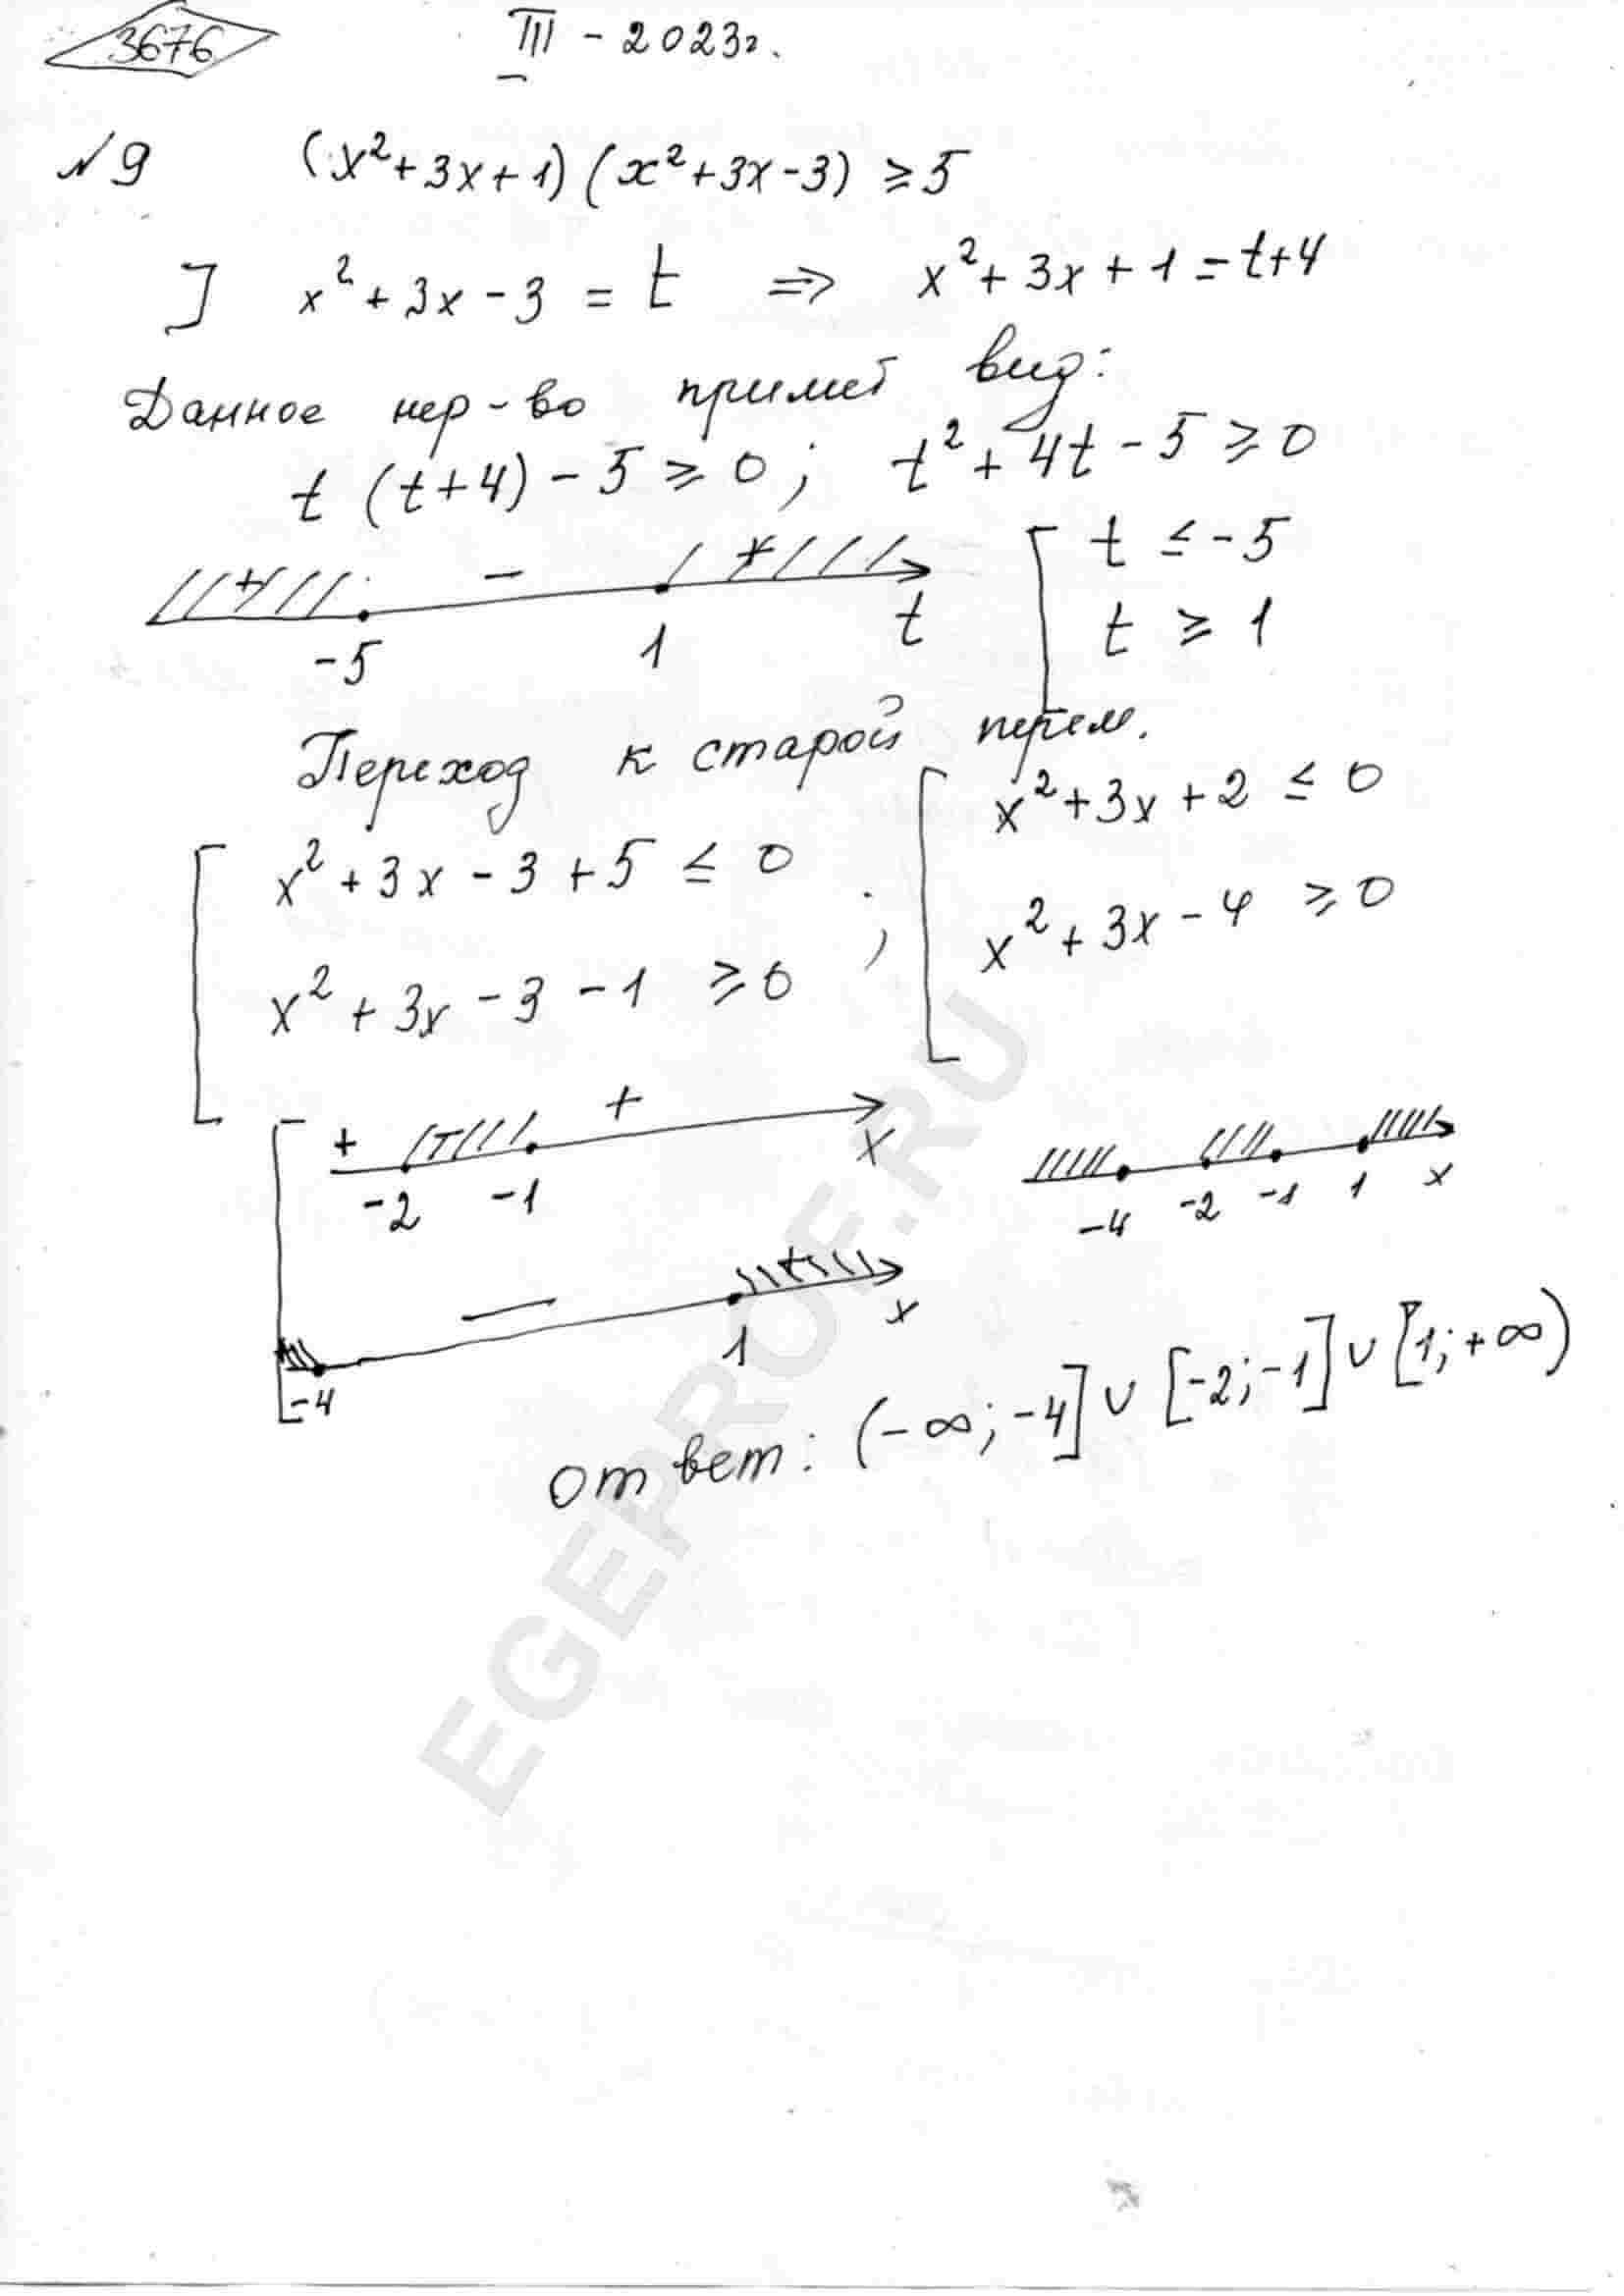 3676 III - 2023г.
№9 (x²+3x+1)(x²+3x-3) ≥ 5
] x²+3x-3 = t ⇒ x²+3x+1=t+4
Данное нер-во примет вид:
t(t+4)-5 ≥ 0; t²+4t-5 ≥ 0
+ - + t ≤ -5
-5 1 t t ≥ 1
Переход к старой перем.
x²+3x-3+5 ≤ 0 ; x²+3x+2 ≤ 0
x²+3x-3-1 ≥ 0 x²+3x-4 ≥ 0
+ - +
-2 -1 x -4 -2 -1 1 x
+ - +
-4 1 x
ответ: (-∞;-4] ∪ [-2;-1] ∪ [1;+∞)
EGEPROF.RU